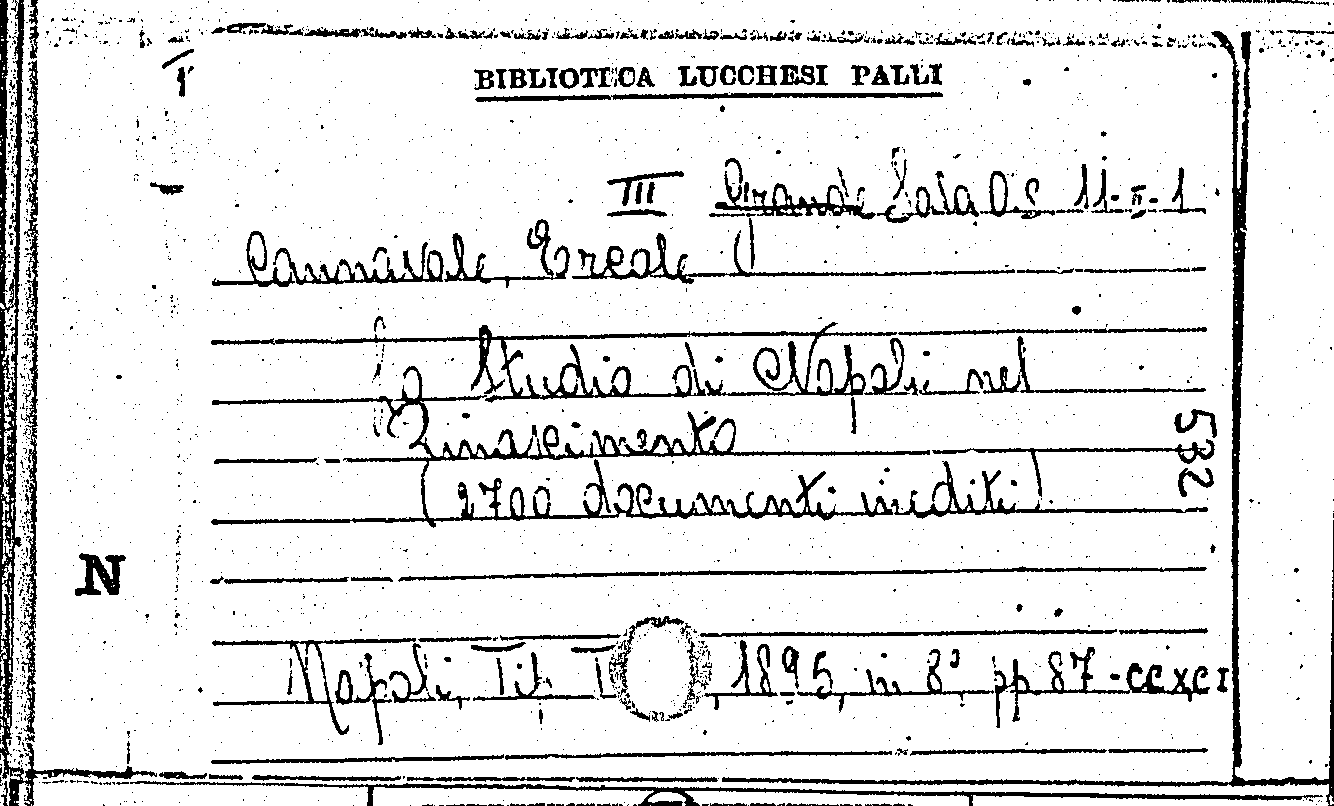 BIBLIOTECA LUCCHESI PALLI
III Grande Sala O.S 11-II-1
Cannavale, Ercole
Lo Studio di Napoli nel
Rinascimento
(2700 documenti inediti)
532
N
Napoli, Tip. T , 1895, in 8°, pp 87-CCXCI